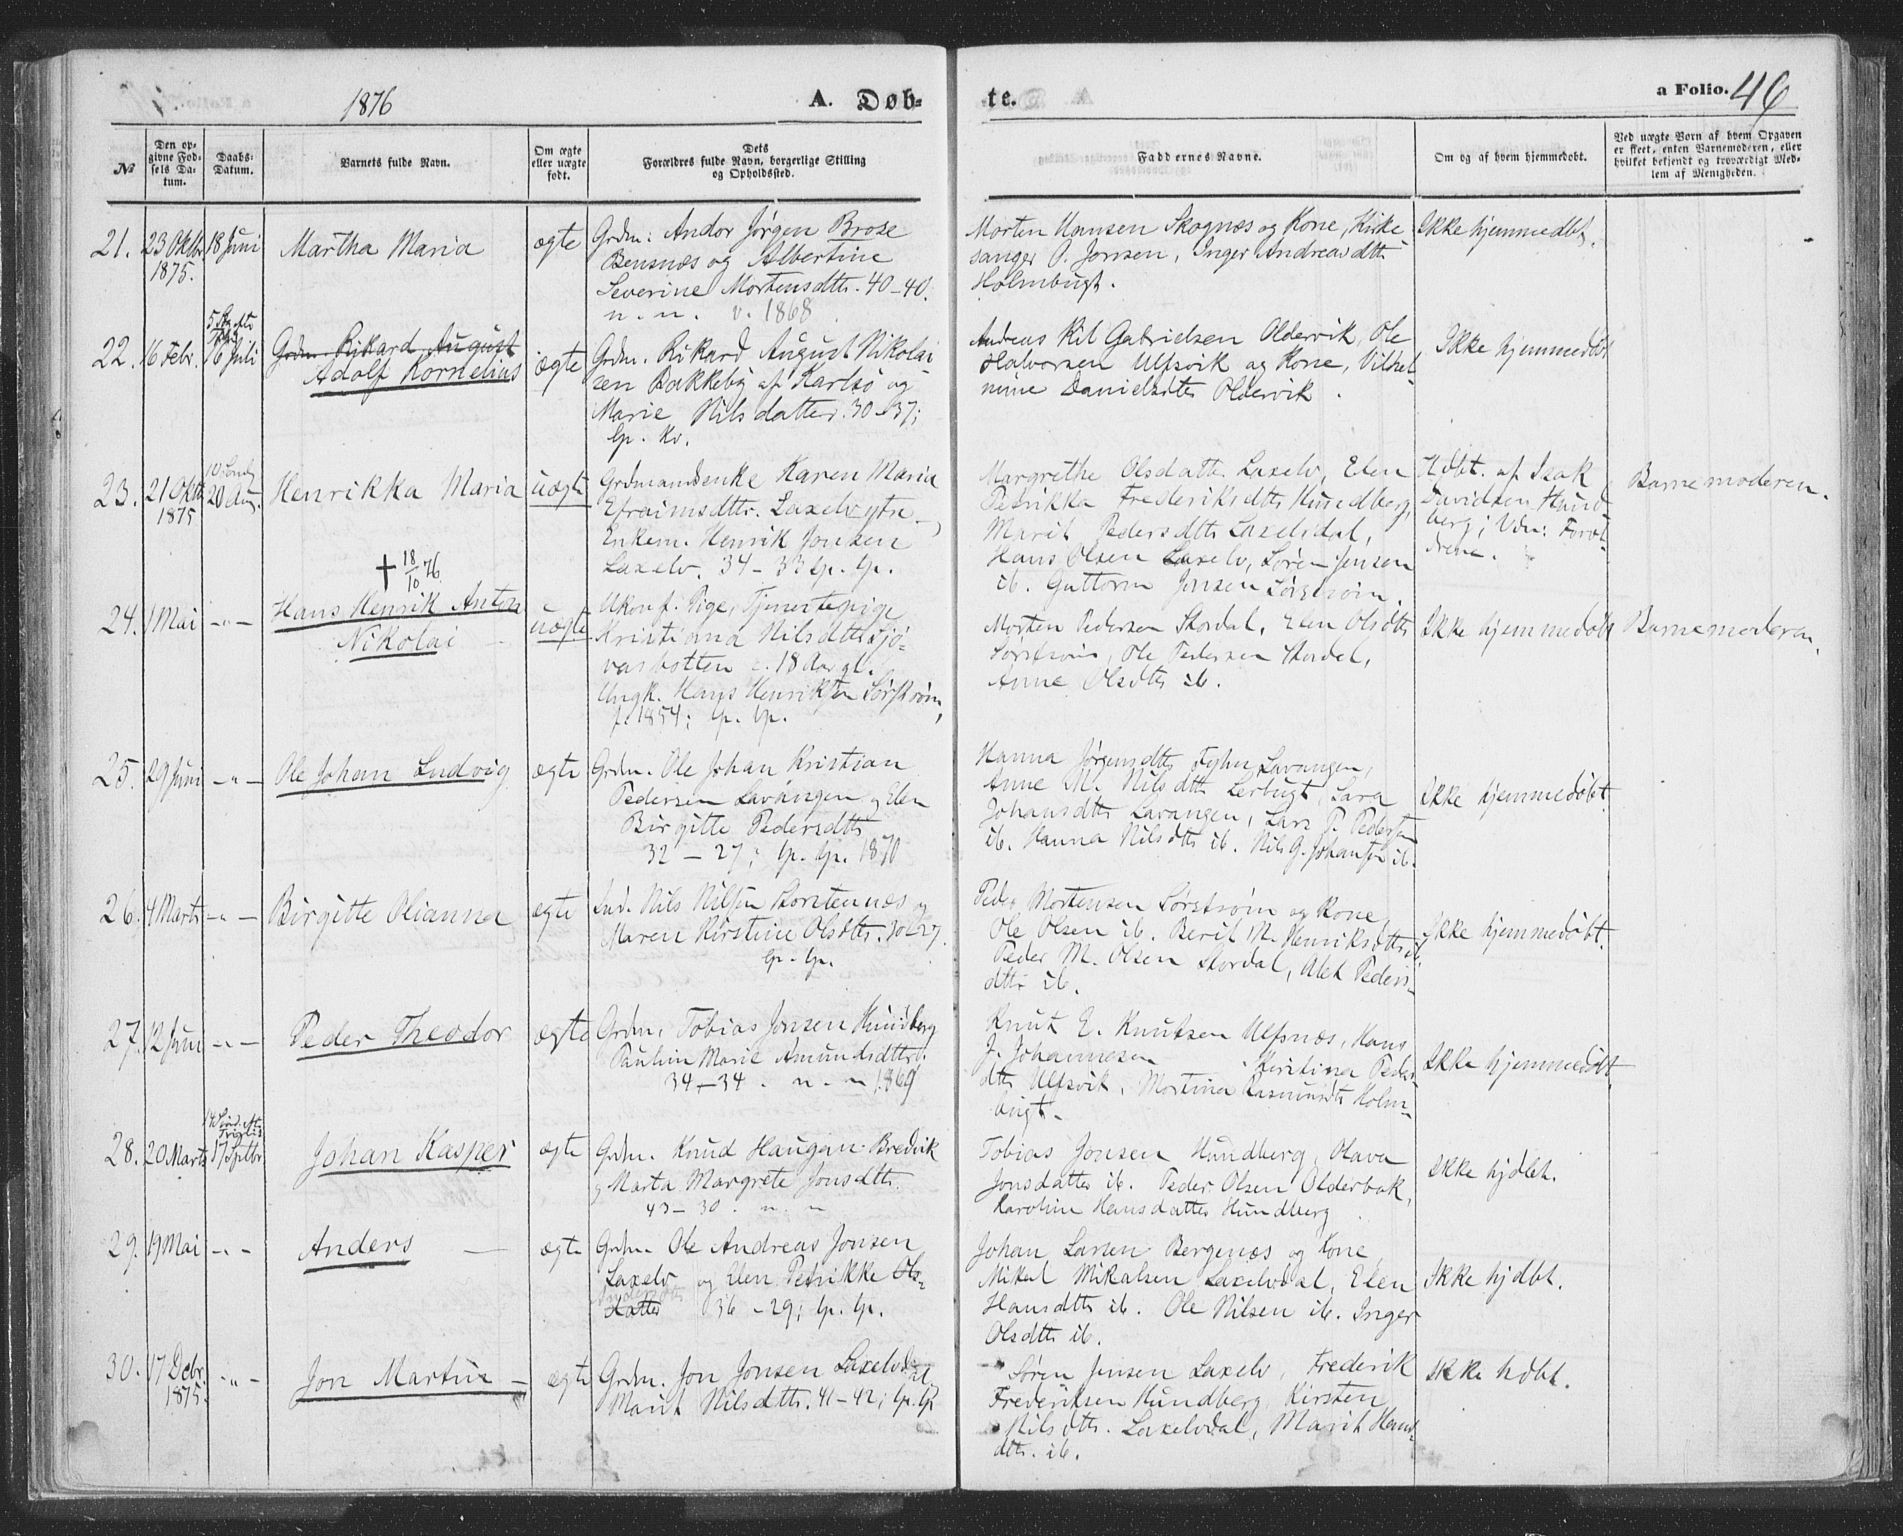 1876
A. Døb-
te.
a Folio. 46
№
Den op-
givne Fød-
sels Da-
tum.
Daabs-
Datum.
Barnets fulde Navn.
Om ægte
eller uægte
født.
Dets
Forældres fulde Navn, borgerlige Stilling
og Opholdssted.
Faddernes Navne.
Om og af hvem hjemmedøbt.
Ved uægte Børn af hvem Opgaven
er skeet, enten Barnemoderen, eller
hvilket bekjendt og troværdigt Med-
lem af Menigheden.
21. 23 Oktbr 1875. 18 Juni
Martha Maria
ægte
Grdm: Andor Jørgen Brose
Bensnæs og Albertine
Severine Mortensdttr. 40-40.
n. n. v. 1868
Morten Hansen Skognæs og Kone, Kirke
sanger O. Jensen, Inger Andreasdttr
Holmbugt.
Ikke hjemmedbt.
22. 16 Febr. 16 Juli
Grdm. Rikard August
Adolf Kornelius
ægte
Grdm. Rikard August Nikolai
sen Bakkeby af Karlsø og
Marie Nilsdatter. 30-37;
lp. kv.
Andreas Gabrielsen Oldervik, Ole
Halvorsen Ulfsvik og Kone, Vilhel-
mine Danielsdtr Oldervik.
Ikke hjemmedøbt
23. 21 Oktb 1875 20 Aug.
Henrikka Maria
uægte
Grdmandsenke Karen Maria
Efraimsdttr. Laxelv ytre
Enkem. Henrik Jonsen
Laxelv. 34-33 lp. lp.
Margrethe Olsdattr Laxelv, Elen
Petrikka Frederiksdttr Hundberg,
Marit Pedersdttr Laxelvdal,
Hans Olsen Laxelv, Søren Jensen
ib. Guttorm Jonsen Sørstrøm.
Hdbt. af Isak
Davidsen Hund
berg; Vdn: Foræl-
drene.
Barnemoderen.
† 18/10 76.
24. 1 Mai -"-
Hans Henrik Anton
Nikolai
uægte
Ukonf. Pige, Tjenestepige
Kristiana Nilsdttr Sjø-
vasbotten c. 18 Aar gl.
Ungk. Hans Henriksen Sørstrøm,
f. 1854; lp. lp.
Morten Pedersen Stordal, Elen Olsdttr
Sørstrøm, Ole Pedersen Stordal,
Anne Olsdttr ib.
Ikke hjemmedøbt
Barnemoderen.
25. 29 Juni -"-
Ole Johan Ludvig
ægte
Grdm. Ole Johan Kristian
Pedersen Lavangen og Elen
Birgitte Pedersdttr
32-27; lp. lp. 1870
Hanna Jørgensdttr Lavangen,
Anne M. Nilsdttr Lerbugt, Lara
Johansdttr Lavangen, Lars P. Pedersen
ib. Hanna Nilsdttr ib. Nils G. Johansen ib.
Ikke hjemmedøbt
26. 4 Marts -"-
Birgitte Olianna
ægte
Ind. Nils Nilsen Horstennæs og
Maren Kirstine Olsdttr. 30-27.
lp. lp.
Peder Mortensen Sørstrøm og Kone,
Ole Olsen ib. Berit M. Henriksdttr ib
Peder M. Olsen Stordal, Alet Peders-
dttr ib.
Ikke hjemmedøbt.
27. 12 Juni -"-
Peder Theodor
ægte
Grdm. Tobias Jonsen Hundberg
Paulin Marie Amundsdttr.
34-34. n. n 1869
Knut E. Knutsen Ulfsnæs, Hans
J. Johannesen Kristina Peder
dttr Ulfsvik, Mortina Rasmusdtr Holm-
bugt.
Ikke hjemmedøbt
28. 20 Marts 17 Septbr
Johan Kasper
ægte
Grdm. Knud Haugan Bredvik
og Marta Margrete Jonsdttr.
43-30. n. n
Tobias Jonsen Hundberg, Olava
Jonsdatter ib. Peder Olsen Olderbak,
Karoline Hansdatter Hundberg
Ikke hjdbt.
29. 19 Mai -"-
Anders
ægte
Grdm. Ole Andreas Jonsen
Laxelv og Elen Petrikke Ols-
datter 36-29; lp. lp.
Johan Larsen Bergenæs og Kone
Mikal Mikalsen Laxelvdal, Elen
Hansdttr ib. Ole Nilsen ib. Inger
Olsdttr ib.
Ikke hjdbt.
30. 17 Decbr 1875. -"-
Jon Martin
ægte
Grdm. Jon Jonsen Laxelvdal,
Marit Nilsdttr. 41-42; lp. lp
Søren Jensen Laxelv, Frederik
Frederiksen Hundberg, Kirsten
Nilsdttr. Laxelvdal, Marit Hans-
dttr. ib.
Ikke hdbt.